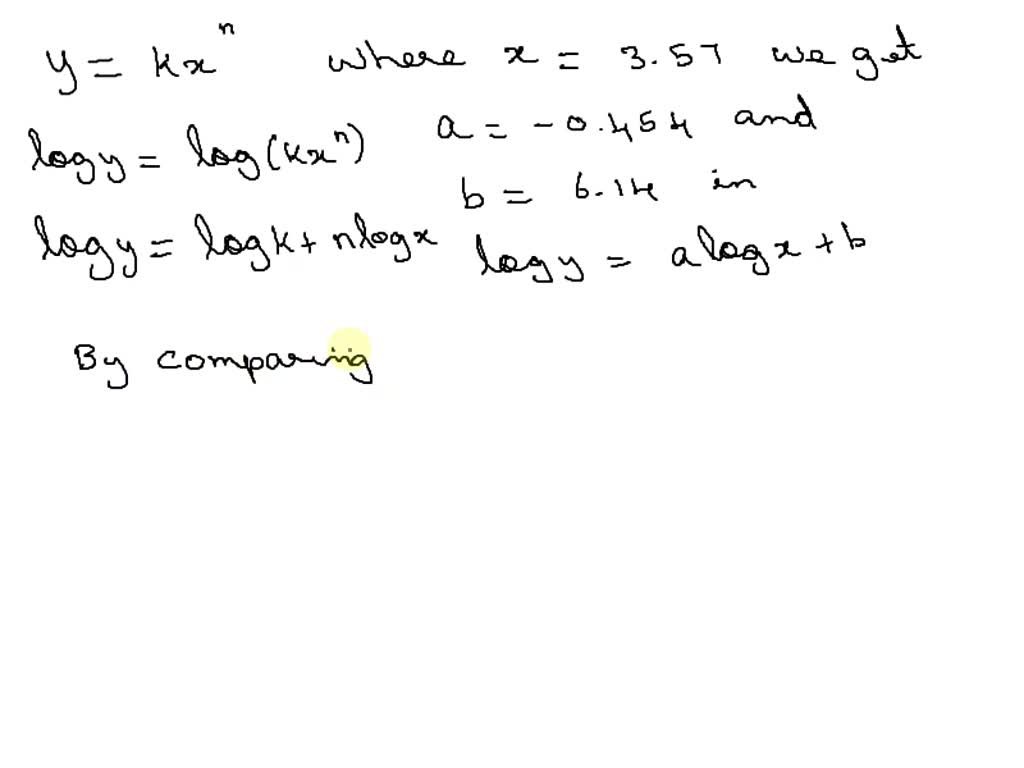 y = kx^n where x = 3.57 we get
log y = log(kx^n) a = -0.454 and
b = 6.14 in
log y = log k + n log x log y = a log x + b
By comparing